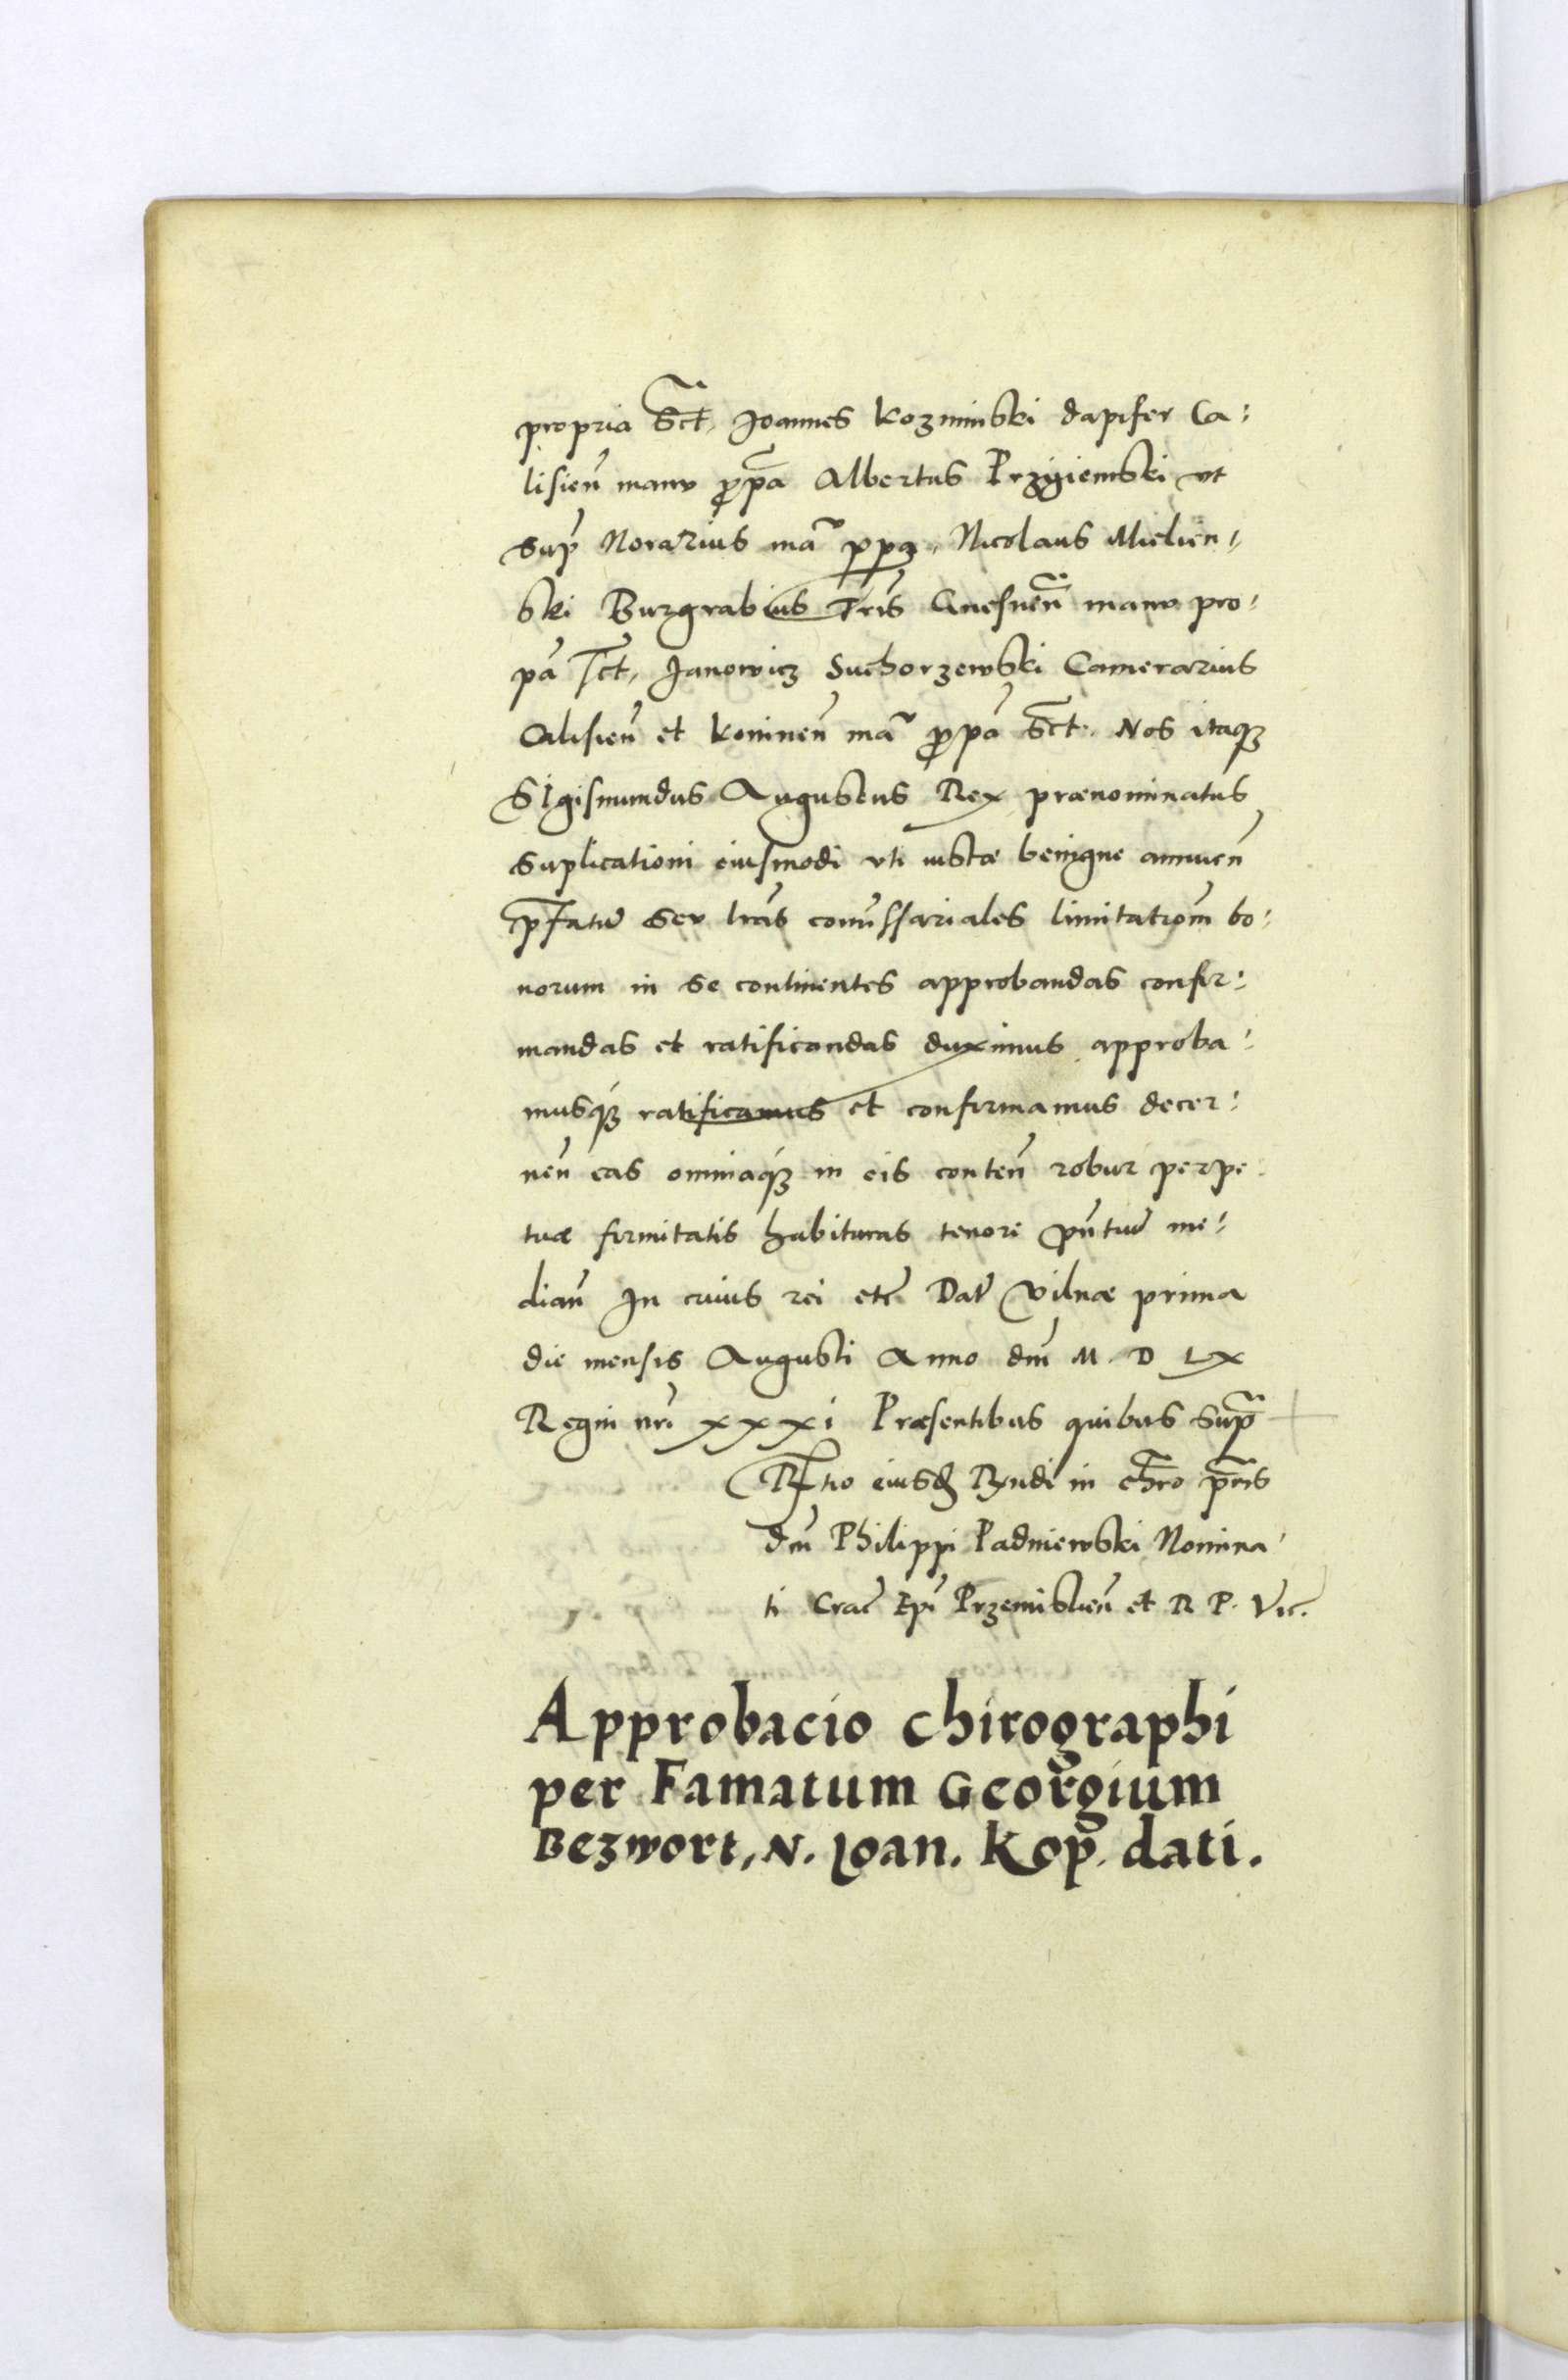 propria sct, Joannes Kozminski dapifer Ca:
lisien̄ manu ꝓpa Albertus Przyiemski vt
sup̄ Notarius mā ppa, Nicolaus Mielien,,
ski Burgrabius Tris Gnesnen̄ manu pro:
pā sct, Janowicz Suchorzewski Camerarius
Calisien̄ et Koninen̄ mā ꝓpā sct. Nos itaqꝫ
Sigismundus Augustus Rex prænominatus
suplicationi eiusmodi vti iustæ benigne annuen̄
p̄fatas seu lrās comissariales limitationem bo:
norum in se continentes approbandas confir:
mandas et ratificandas duximus approba:
musqꝫ ratificamus et confirmamus decer:
nen̄ eas omniaqꝫ in eis conten̄ robur perpe:
tuæ firmitatis habituras tenore pn̄tium me:
dian̄ In cuius rei etc̄ Dat̄ Vilnæ prima
die mensis Augusti Anno dn̄i M. D LX
Regni nr̄i xxxi Præsentibus quibus supᷓ
Rltio eiusdꝫ Rx̄ndi in Chr̄o pr̄is
dn̄i Philippi Padniewski Nomina:
ti Crac̄ Ep̄i Przemislien̄ et R P. Vic.
Approbacio chirographi
per Famatum Georgium
Bezwort, N. Ioan. Kop. dati.